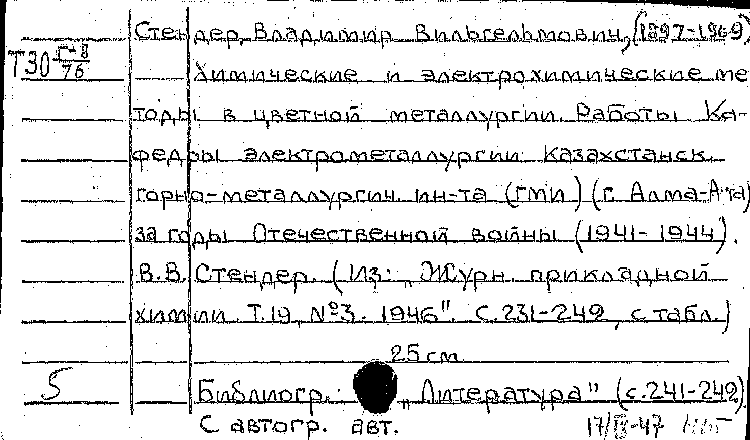 Стендер, Владимир Вильгельмович, (1897-1969)
Т30 Г-8/76
Химические и электрохимические ме
тоды в цветной металлургии. Работы Ка-
федры электрометаллургии Казахстанск.
горно-металлургич. ин-та (ГМИ) (г. Алма-Ата)
за годы Отечественной войны (1941-1944).
В.В. Стендер. (Из: „Журн. прикладной
химии. Т.19, №3. 1946". С.231-249, с табл.)
25 см
5 Библиогр.: „Литература" (с.241-249).
С автогр. авт. 17/IX-47